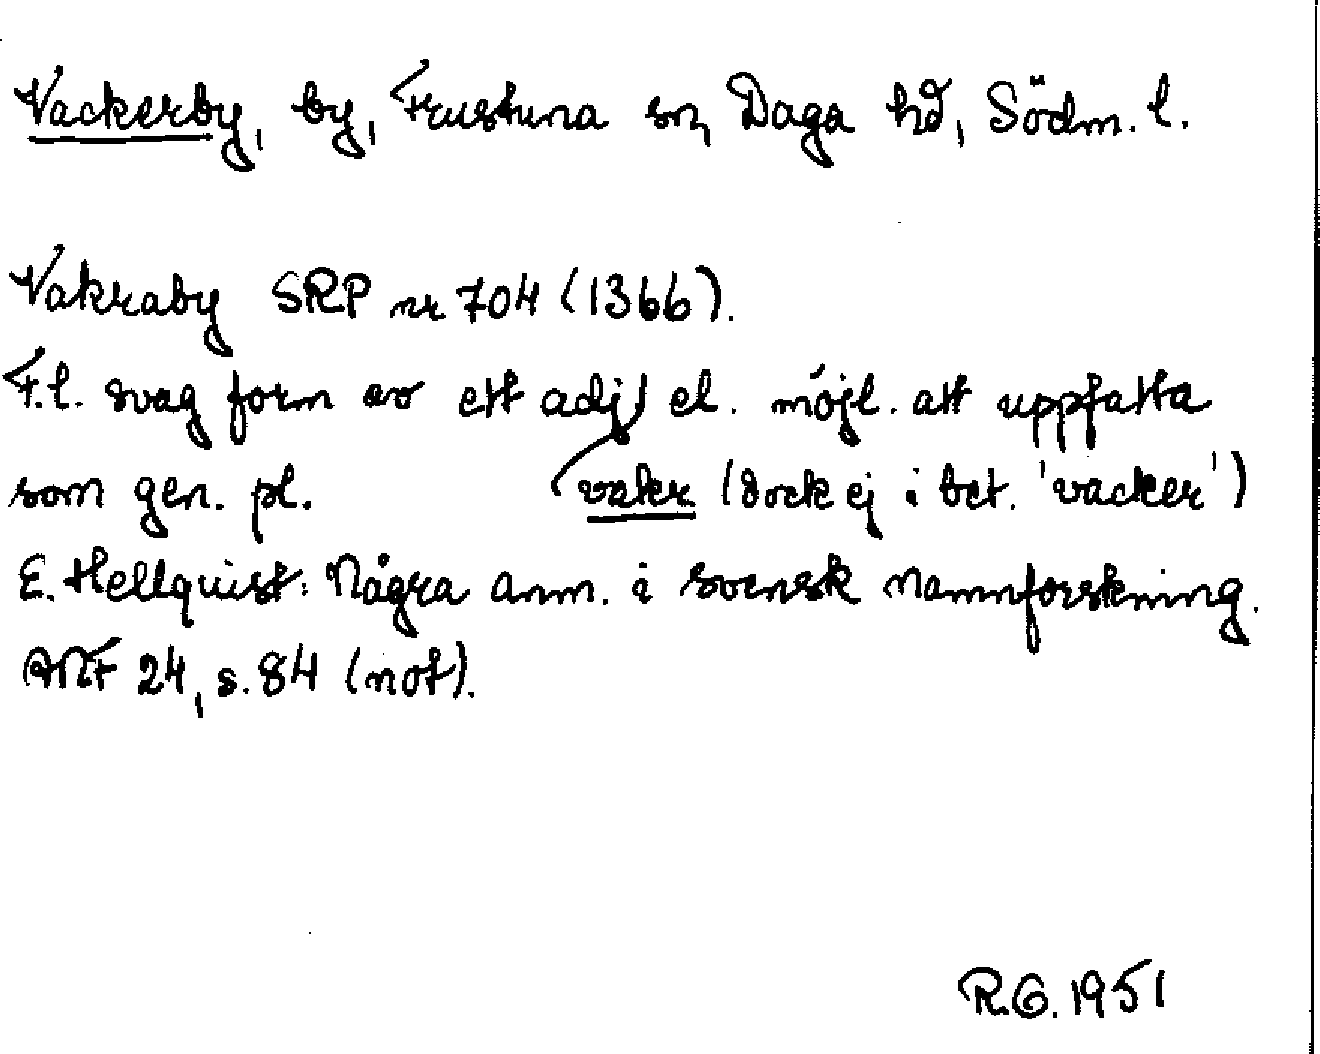 Vackerby, by, Frustuna sn, Daga hd, Södm. l.
Vakraby SRP nr 704 (1366).
F.l. svag form av ett adj. el. möjl. att uppfatta
som gen. pl. vakr (dock ej i bet. 'vacker')
E. Hellquist: Några anm. i svensk namnforskning.
ANF 24, s. 84 (not).
R.G. 1951